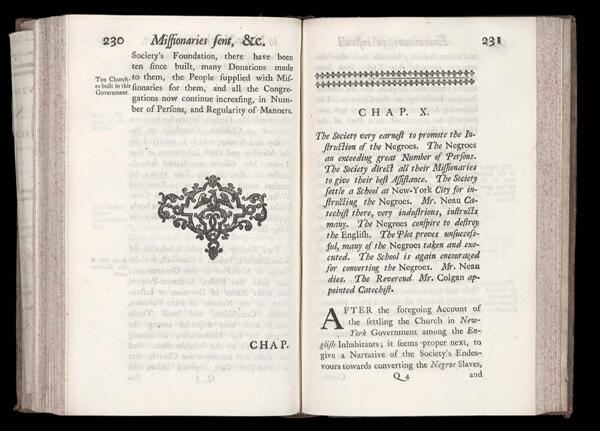 230 Miſſionaries ſent, &c.
Society's Foundation, there have been
ten ſince built, many Donations made
to them, the People ſupplied with Miſ-
ſionaries for them, and all the Congre-
gations now continue increaſing, in Num-
ber of Perſons, and Regularity of Manners.
Ten Church-
es built in this
Government.
CHAP.
231
CHAP. X.
The Society very earneſt to promote the In-
ſtruction of the Negroes. The Negroes
an exceeding great Number of Perſons.
The Society direct all their Miſſionaries
to give their beſt Aſſiſtance. The Society
ſettle a School at New-York City for in-
ſtructing the Negroes. Mr. Neau Ca-
techiſt there, very induſtrious, inſtructs
many. The Negroes conſpire to deſtroy
the Engliſh. The Plot proves unſucceſs-
ful, many of the Negroes taken and exe-
cuted. The School is again encouraged
for converting the Negroes. Mr. Neau
dies. The Reverend Mr. Colgan ap-
pointed Catechiſt.
AFTER the foregoing Account of
the ſettling the Church in New-
York Government among the En-
gliſh Inhabitants; it ſeems proper next, to
give a Narrative of the Society's Endea-
vours towards converting the Negroe Slaves,
Q 4 and